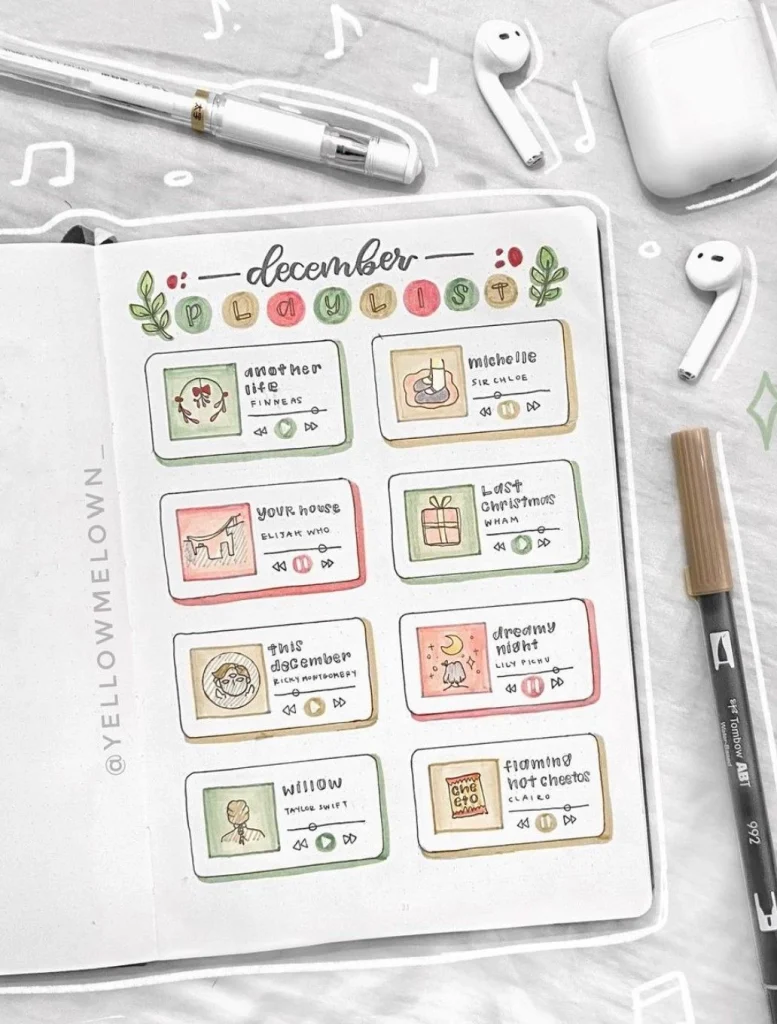 december
PLAYLIST
another
life
FINNEAS
michelle
SIR CHLOE
your house
ELIJAH WHO
Last
Christmas
WHAM
this
december
RICKY MONTGOMERY
dreamy
night
LILY PICHU
willow
TAYLOR SWIFT
flaming
hot cheetos
CLAIRO
CHE
ETO
@YELLOWMELOWN_
Tombow ABT
992